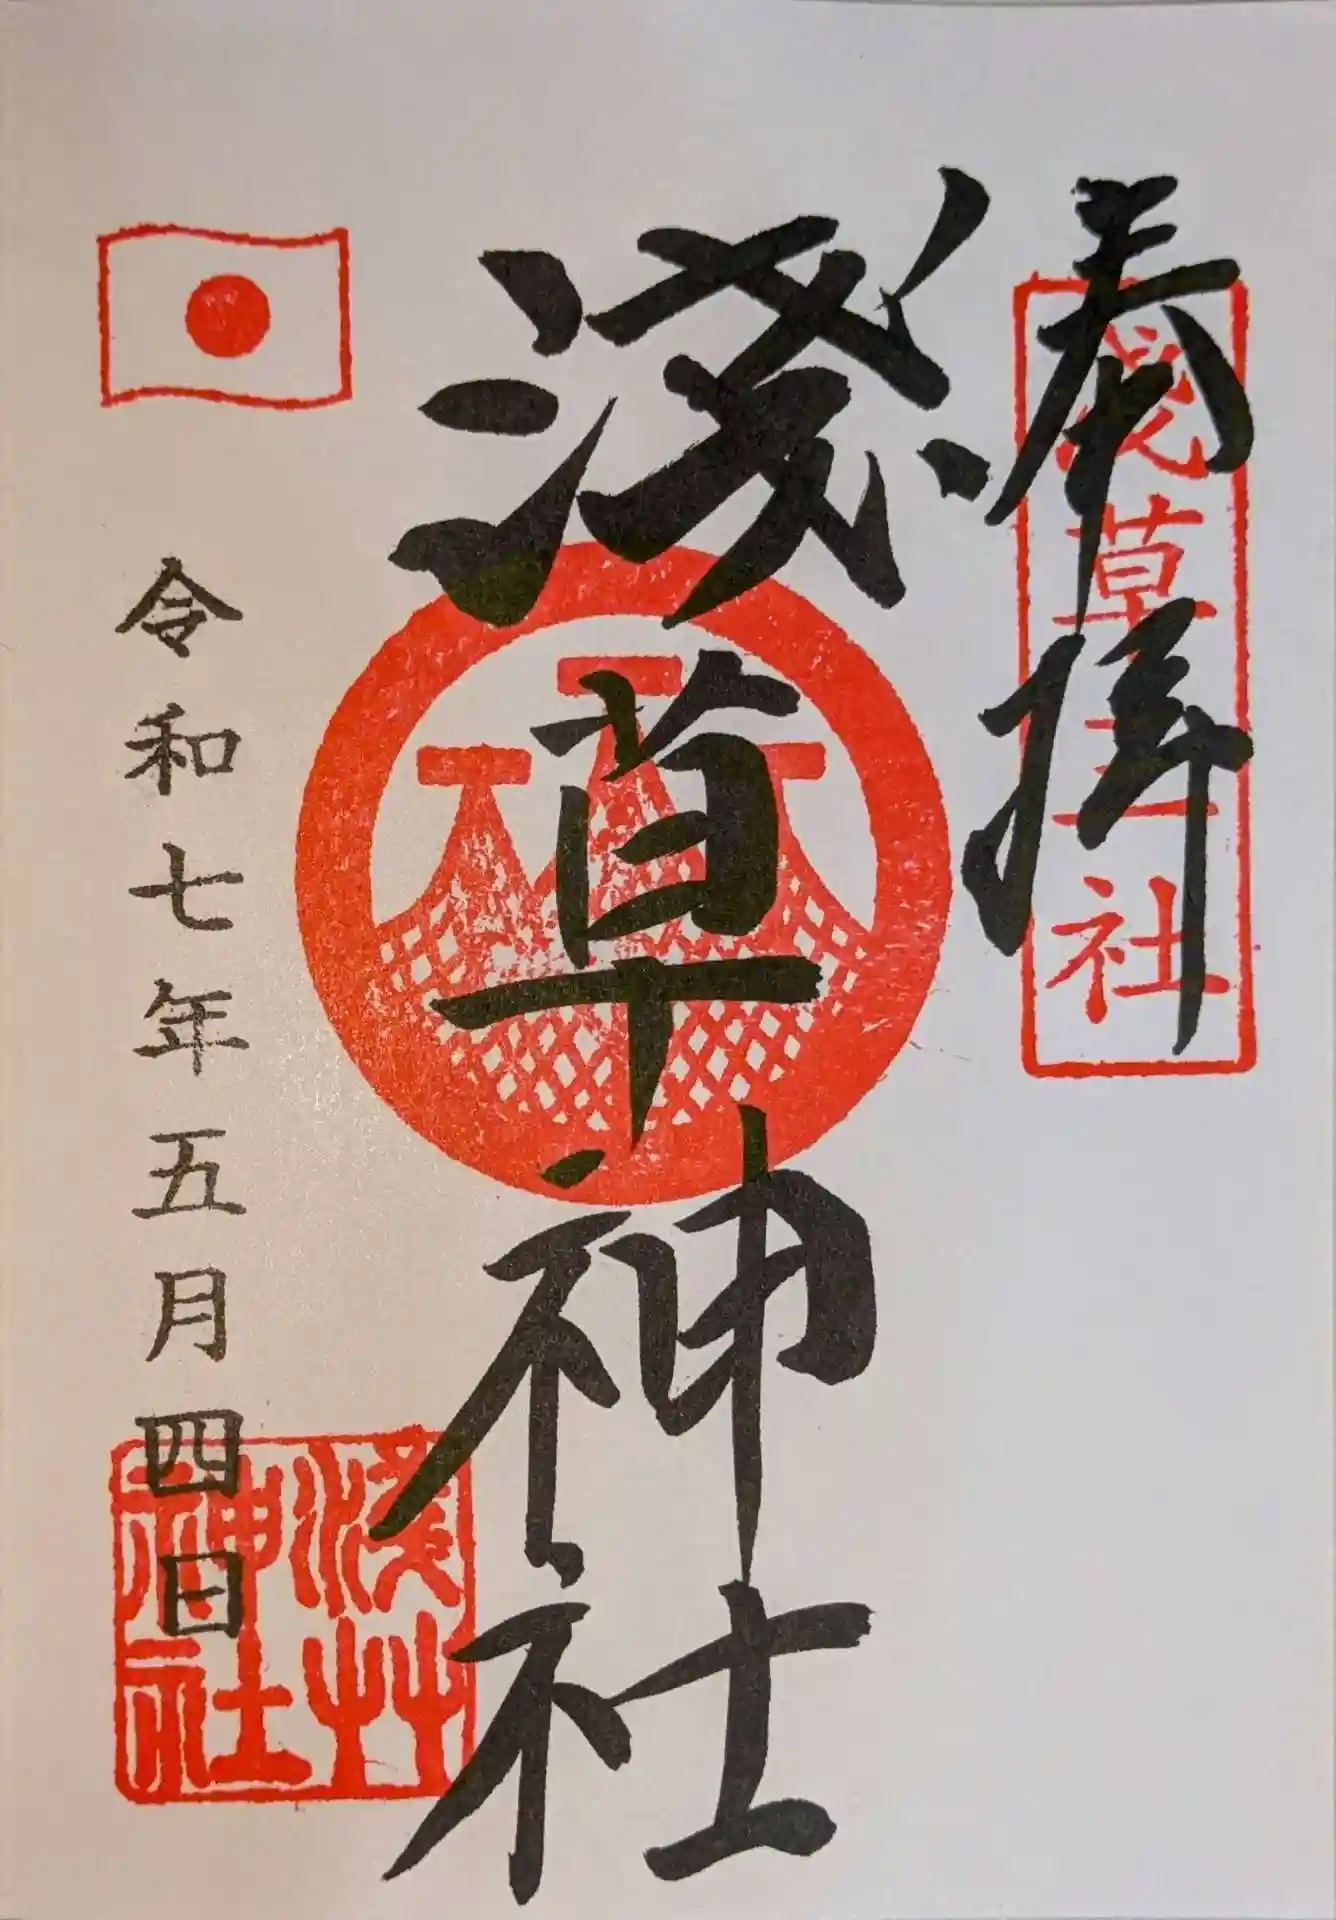 奉拝
浅草三社
淺草神社
令和七年五月四日
淺草
神社